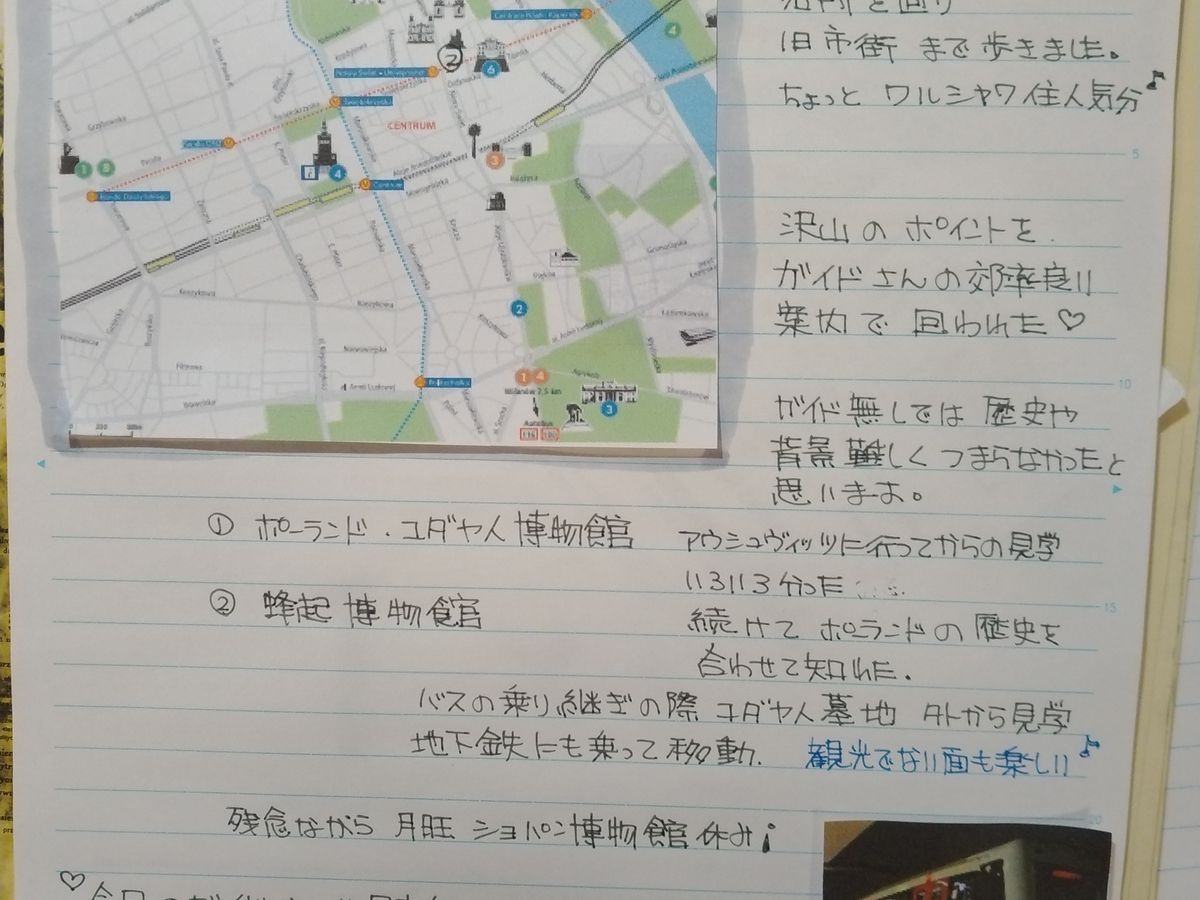 CENTRUM
Centrum
Politechnika
Rondo Daszyńskiego
Prosta
Grzybowska
Koszykowa
Koszykowa
Nowowiejska
Filtrowa
Wawelska
Książęca
Piękna
Agrykola
Wilanów 7,5 km
Autobus
116 180
旧市街 まで歩きました。
ちょっと ワルシャワ住人気分♪
沢山の ポイントを
ガイドさんの効率良い
案内で 回われた♡
ガイド無しでは 歴史や
背景難しく つまらなかったと
思います。
① ポーランド・ユダヤ人博物館 アウシュヴィッツに行ってからの見学
いろいろ分った……
② 蜂起博物館 続けて ポーランドの歴史を
合わせて知れた.
バスの乗り継ぎの際 ユダヤ人墓地 外から見学
地下鉄にも乗って移動. 観光でない面も楽しい♪
残念ながら 月旺 ショパン博物館 休み¡
♡今日の